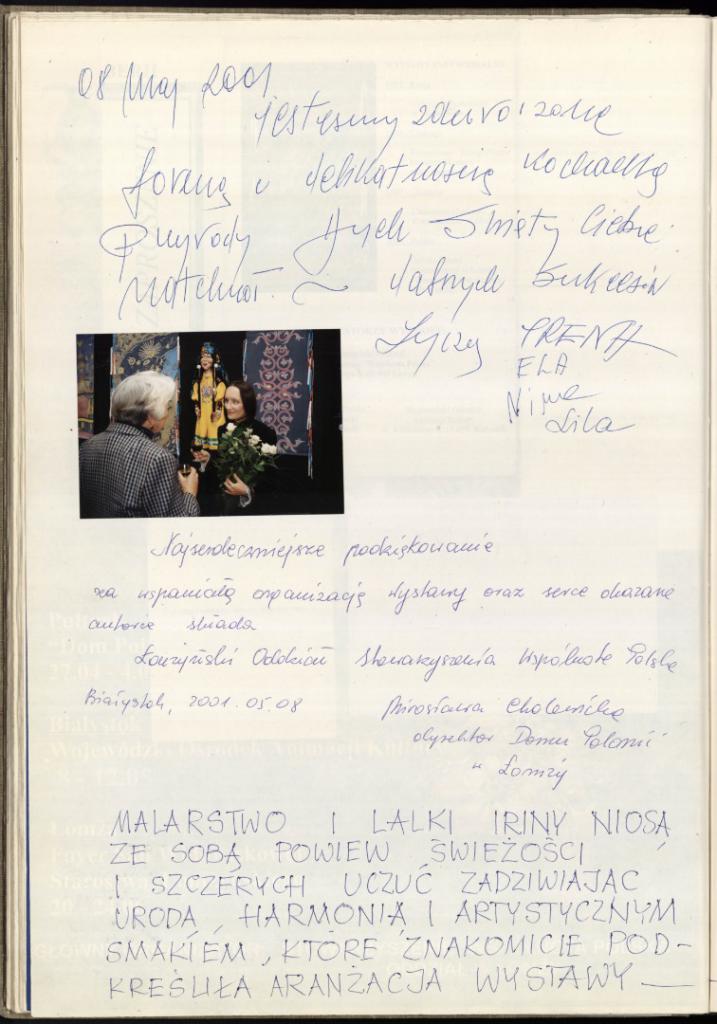 08 Maj 2001
jesteśmy zauroczone
formą i delikatnością
Przyrody
natchnął. ~ dalszych sukcesów
życzą IRENA
ELA
Nina
Lila
Najserdeczniejsze podziękowanie
za wspaniałą organizację wystawy oraz serce okazane
autorce składa
Łomżyński Oddział Stowarzyszenia Wspólnota Polska
Białystok, 2001.05.08
Mirosława
dyrektor Domu Polonii
w Łomży
MALARSTWO I LALKI IRINY NIOSĄ
ZE SOBĄ POWIEW ŚWIEŻOŚCI
I SZCZERYCH UCZUĆ, ZADZIWIAJĄC
URODĄ, HARMONIĄ I ARTYSTYCZNYM
SMAKIEM, KTÓRE ZNAKOMICIE POD-
KREŚLIŁA ARANŻACJA WYSTAWY —